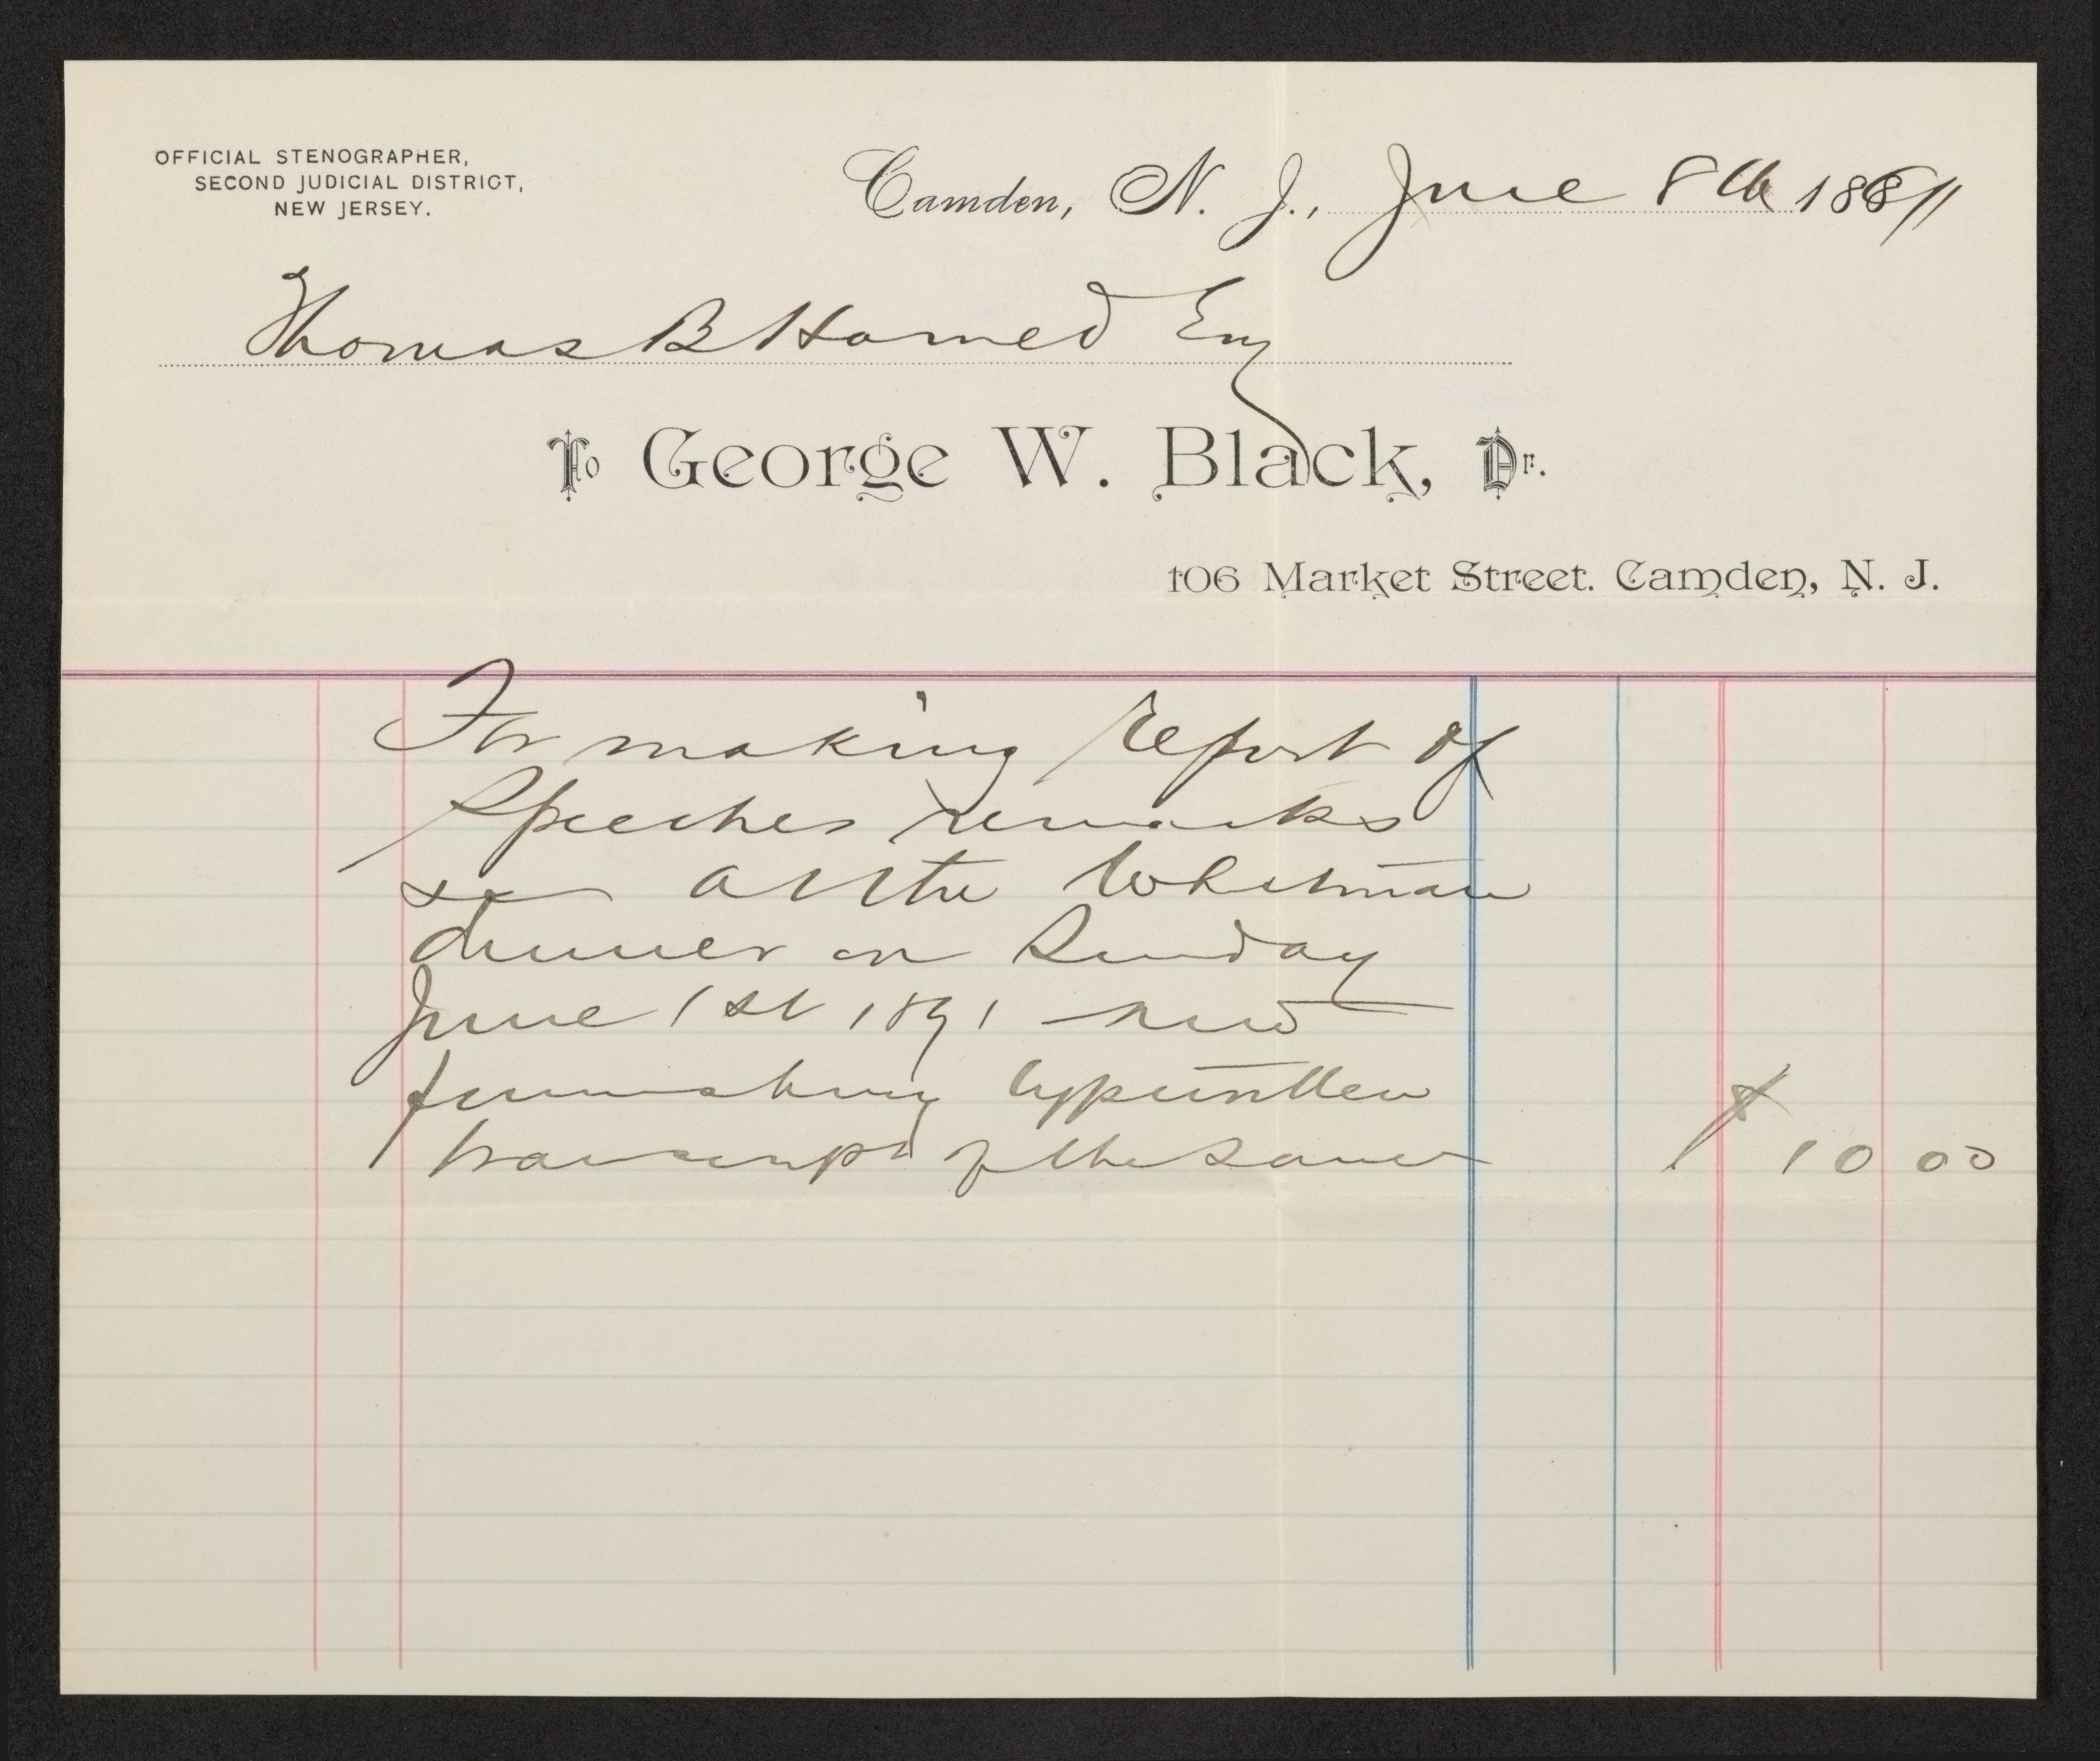 OFFICIAL STENOGRAPHER,
SECOND JUDICIAL DISTRICT,
NEW JERSEY.
Camden, N. J., June 8th 1891
Thomas B Harned Esq
To George W. Black, Dr.
106 Market Street. Camden, N. J.
For making report of
Speeches remarks
&c at the Whitman
dinner on Sunday
June 1st 1891 and
furnishing typewritten
transcript of the same $ 10 00